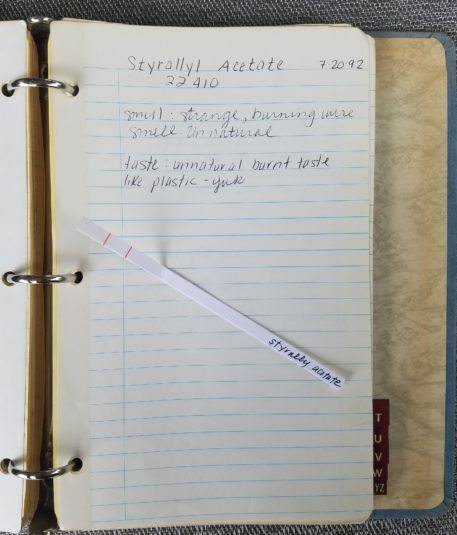 Styrallyl Acetate 7 20 92
22410
smell: strange, burning wire
smell unnatural
taste: unnatural burnt taste
like plastic - yuk
styrallyl acetate
T
U
V
W
YZ